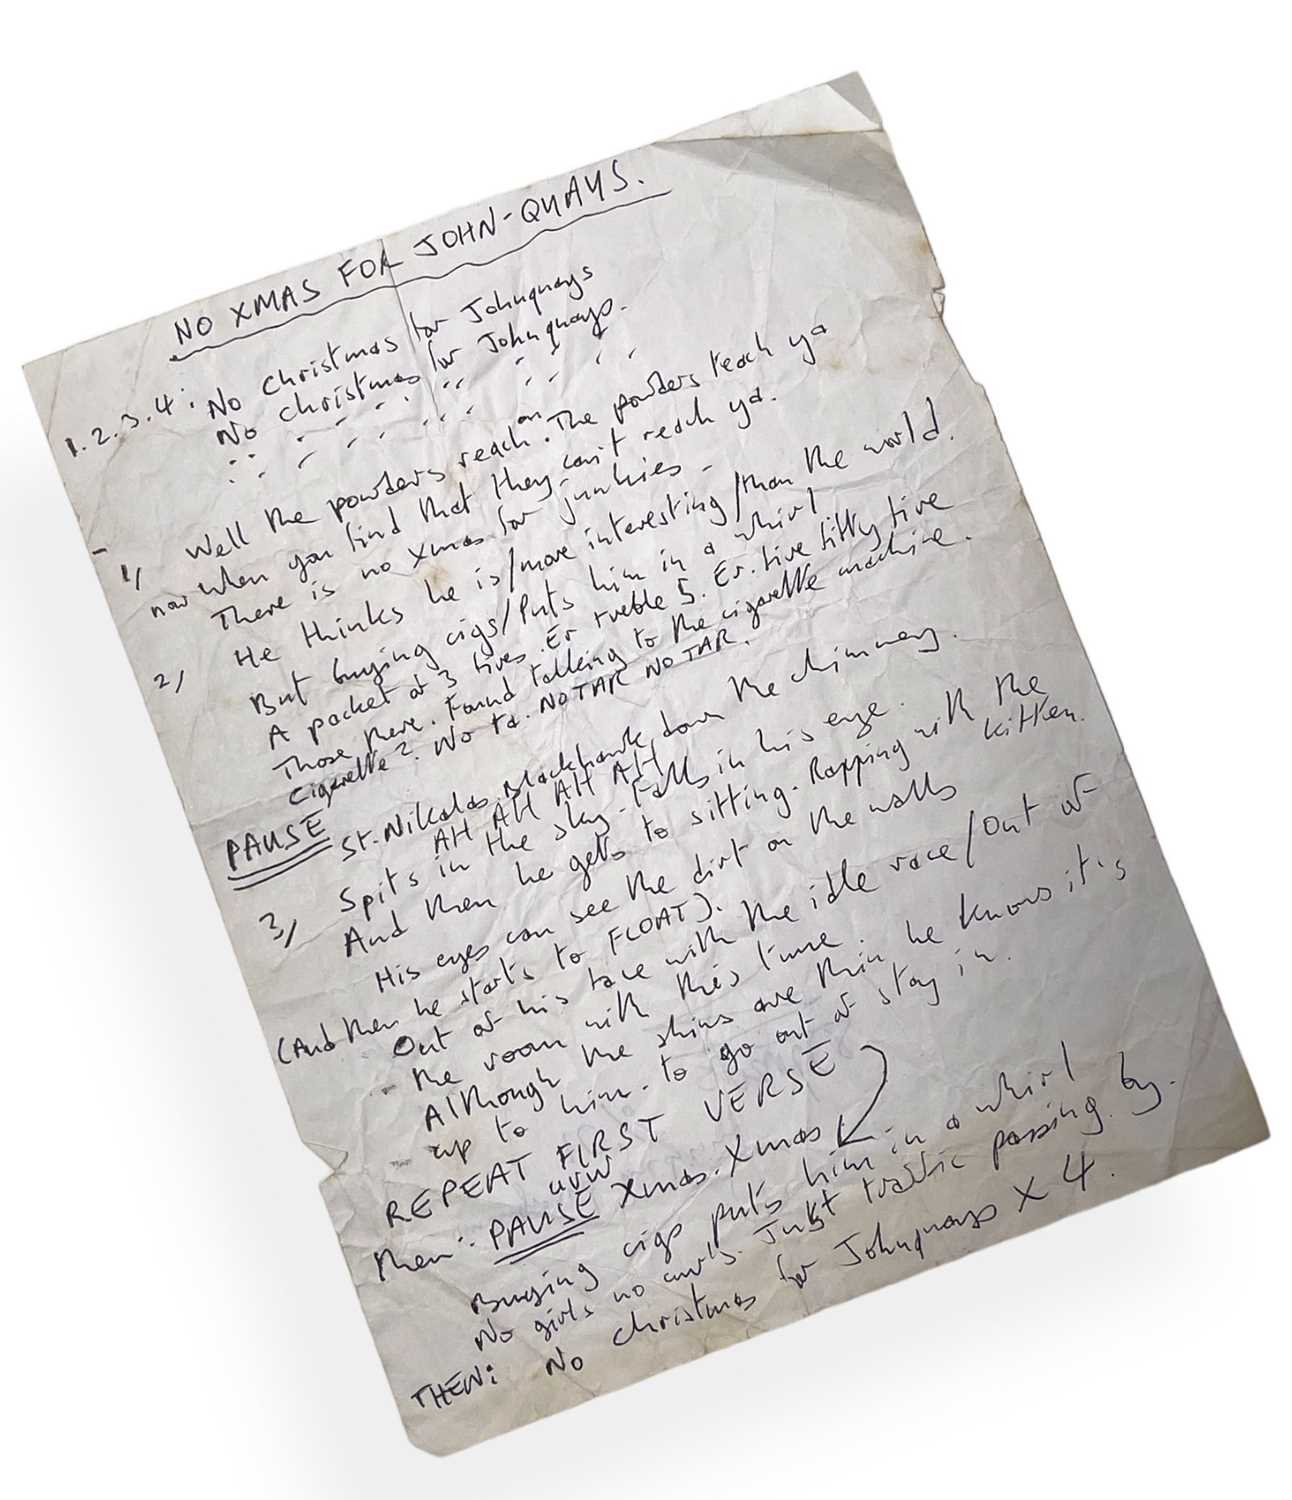 NO XMAS FOR JOHN-QUAYS.
1.2.3.4: No christmas for Johnquays
No christmas for Johnquays.
" " " " " "
" " " " " "
1/ Well the powders reach on. The powders reach ya
now when you find that they can't reach ya.
There is no Xmas for junkies -
2/ He thinks he is/more interesting/than the world.
But buying cigs/Puts him in a whirl
A packet of 3 fives. Er treble 5. Er. five fifty five
Those there. Found talking to the cigarette machine.
Cigarette? No ta. NO TAR NO TAR.
PAUSE St. Nikolas Blackhawk down the chimney.
AH AH AH AH AH
3/ Spits in the sky. Falls in his eye.
And then he gets to sitting. Rapping with the kitten.
His eyes can see the dirt on the walls
(And then he starts to FLOAT).
Out of his face with the idle race/Out of
the room with this tune.
Although the skins are thin he knows it's
up to him. to go out or stay in.
REPEAT FIRST VERSE
Then: PAUSE Xmas. Xmas
Buying cigs puts him in a whirl
No girls no Just traffic passing by.
THEN: No christmas for Johnquays X 4.